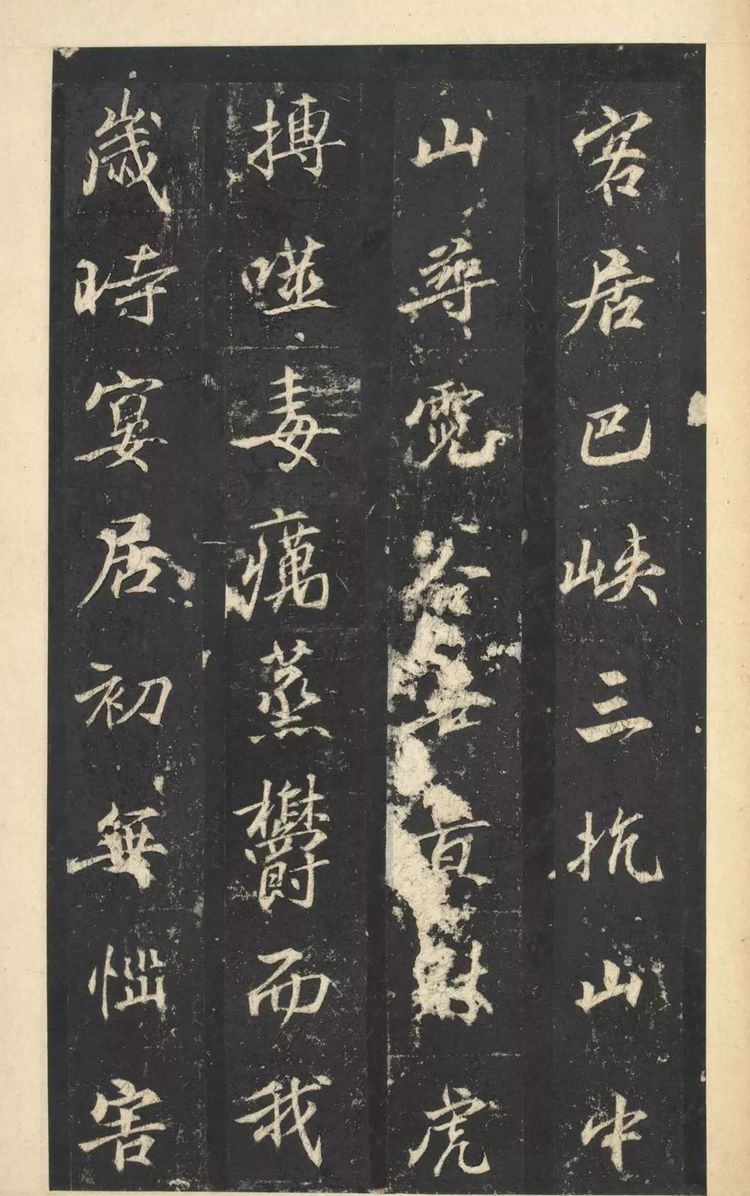 客居巴峡三抗山中
山尋霓谷亘豺虎
搏噬毒癘蒸鬱而我
歲時宴居初無惱害